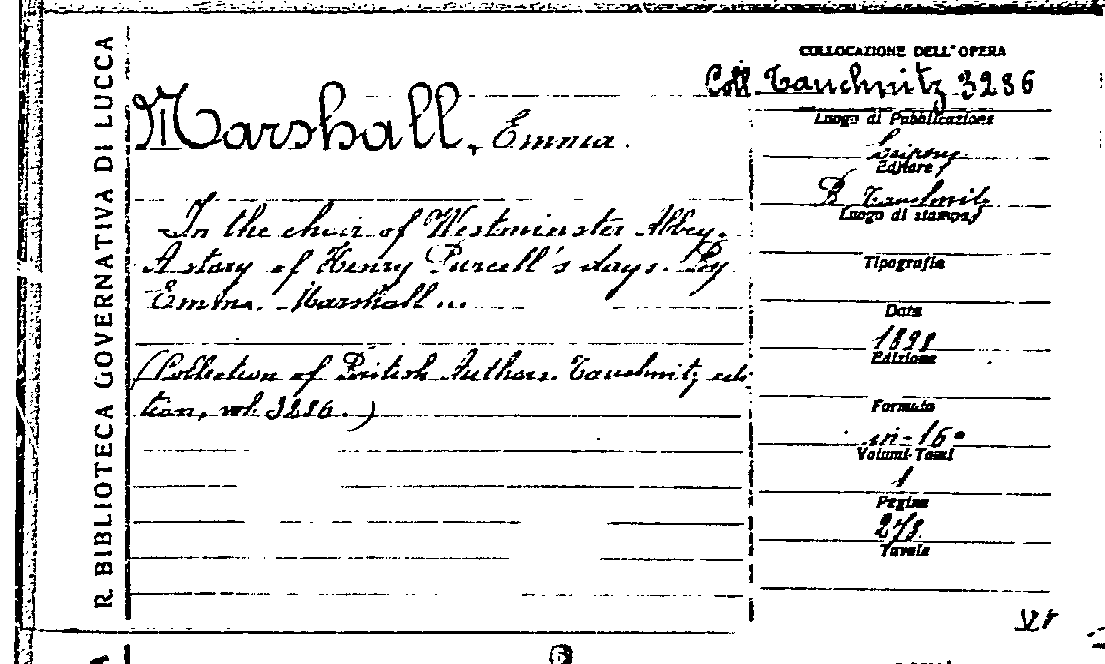 R. BIBLIOTECA GOVERNATIVA DI LUCCA
Marshall, Emma.
In the choir of Westminster Abbey.
A story of Henry Purcell's days. By
Emma. Marshall ...
(Collection of British Authors. Tauchnitz edi-
tion, vol. 3286.)
COLLOCAZIONE DELL'OPERA
Coll. Tauchnitz 3286
Luogo di Pubblicazione
Leipzig
Editore
B. Tauchnitz
Luogo di stampa
Tipografia
Data
1898
Edizione
Formato
in-16°
Volumi-Tomi
1
Pagine
278
Tavole